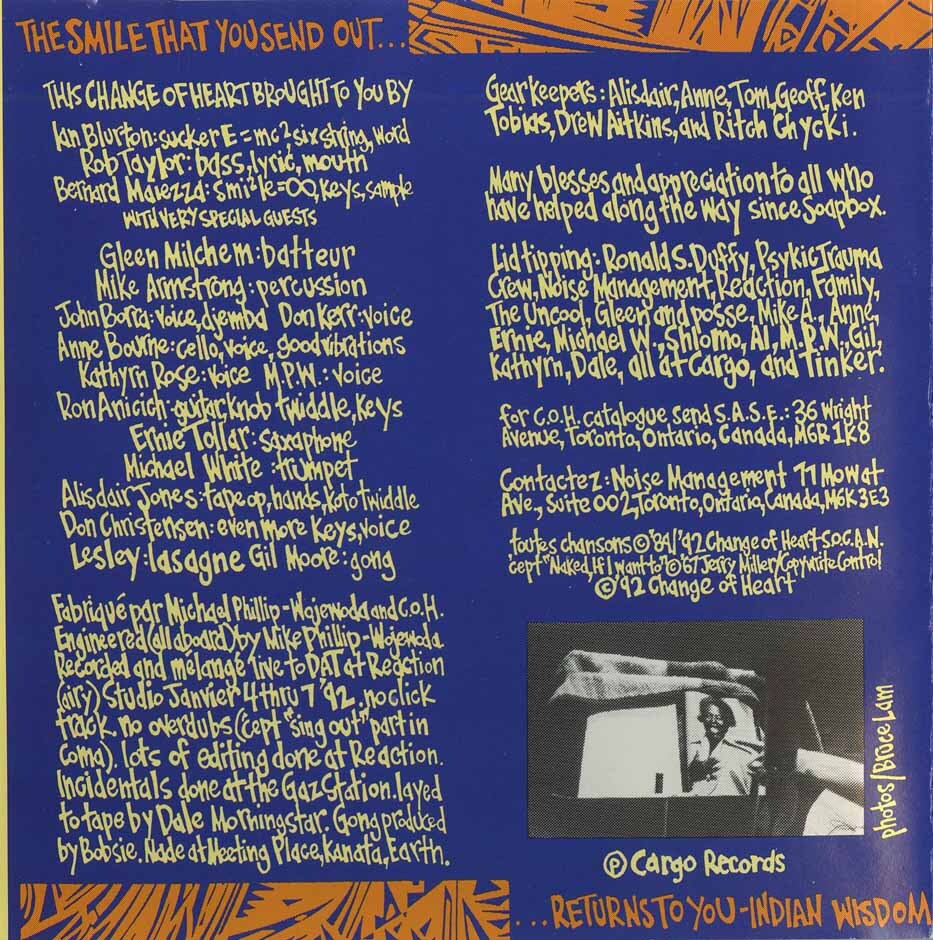 THE SMILE THAT YOU SEND OUT...
THIS CHANGE OF HEART BROUGHT TO YOU BY
Ian Blurton: sucker E=mc², six string, word
Rob Taylor: bass, lyric, mouth
Bernard Maiezza: smi²le=∞, keys, sample
WITH VERY SPECIAL GUESTS
Gleen Milchem: batteur
Mike Armstrong: percussion
John Borra: voice, djemba Don Kerr: voice
Anne Bourne: cello, voice, good vibrations
Kathyrn Rose: voice M.P.W.: voice
Ron Anicich: guitar, knob twiddle, keys
Ernie Tollar: saxaphone
Michael White: trumpet
Alisdair Jones: tape op, hands, koto twiddle
Don Christensen: even more keys, voice
Lesley: lasagne Gil Moore: gong
Fabriqué par Michael Phillip-Wojewoda and C.O.H.
Engineered (all aboard) by Mike Phillip-Wojewoda
Recorded and mélange live to DAT at Reaction
(airy) Studio Janvier 4 thru 7 '92. no click
track. no overdubs (cept "sing out" part in
coma). lots of editing done at Reaction.
Incidentals done at the Gaz Station. layed
to tape by Dale Morningstar. Gong produced
by Bobsie. Made at Meeting Place, Kanata, Earth.
Gear keepers: Alisdair, Anne, Tom, Geoff, Ken
Tobias, Drew Aitkins, and Ritch Chycki.
Many blesses and appreciation to all who
have helped along the way since Soapbox.
Lid tipping: Ronald S. Duffy, Psykic Trauma
Crew, Noise Management, Reaction, Family,
The Uncool, Gleen and posse, Mike A., Anne,
Ernie, Michael W., Shlomo, Al, M.P.W., Gil,
Kathyrn, Dale, all at Cargo, and Tinker.
for C.O.H. catalogue send S.A.S.E.: 36 Wright
Avenue, Toronto, Ontario, Canada, M6R 1K8
Contactez: Noise Management 77 Mowat
Ave., Suite 002, Toronto, Ontario, Canada, M6K 3E3
toutes chansons © '84/'92 Change of Heart S.O.C.A.N.
cept "Naked, If I want to" © '67 Jerry Miller/Copywrite Control
© '92 Change of Heart
photos/Bruce Lam
℗ Cargo Records
...RETURNS TO YOU-INDIAN WISDOM